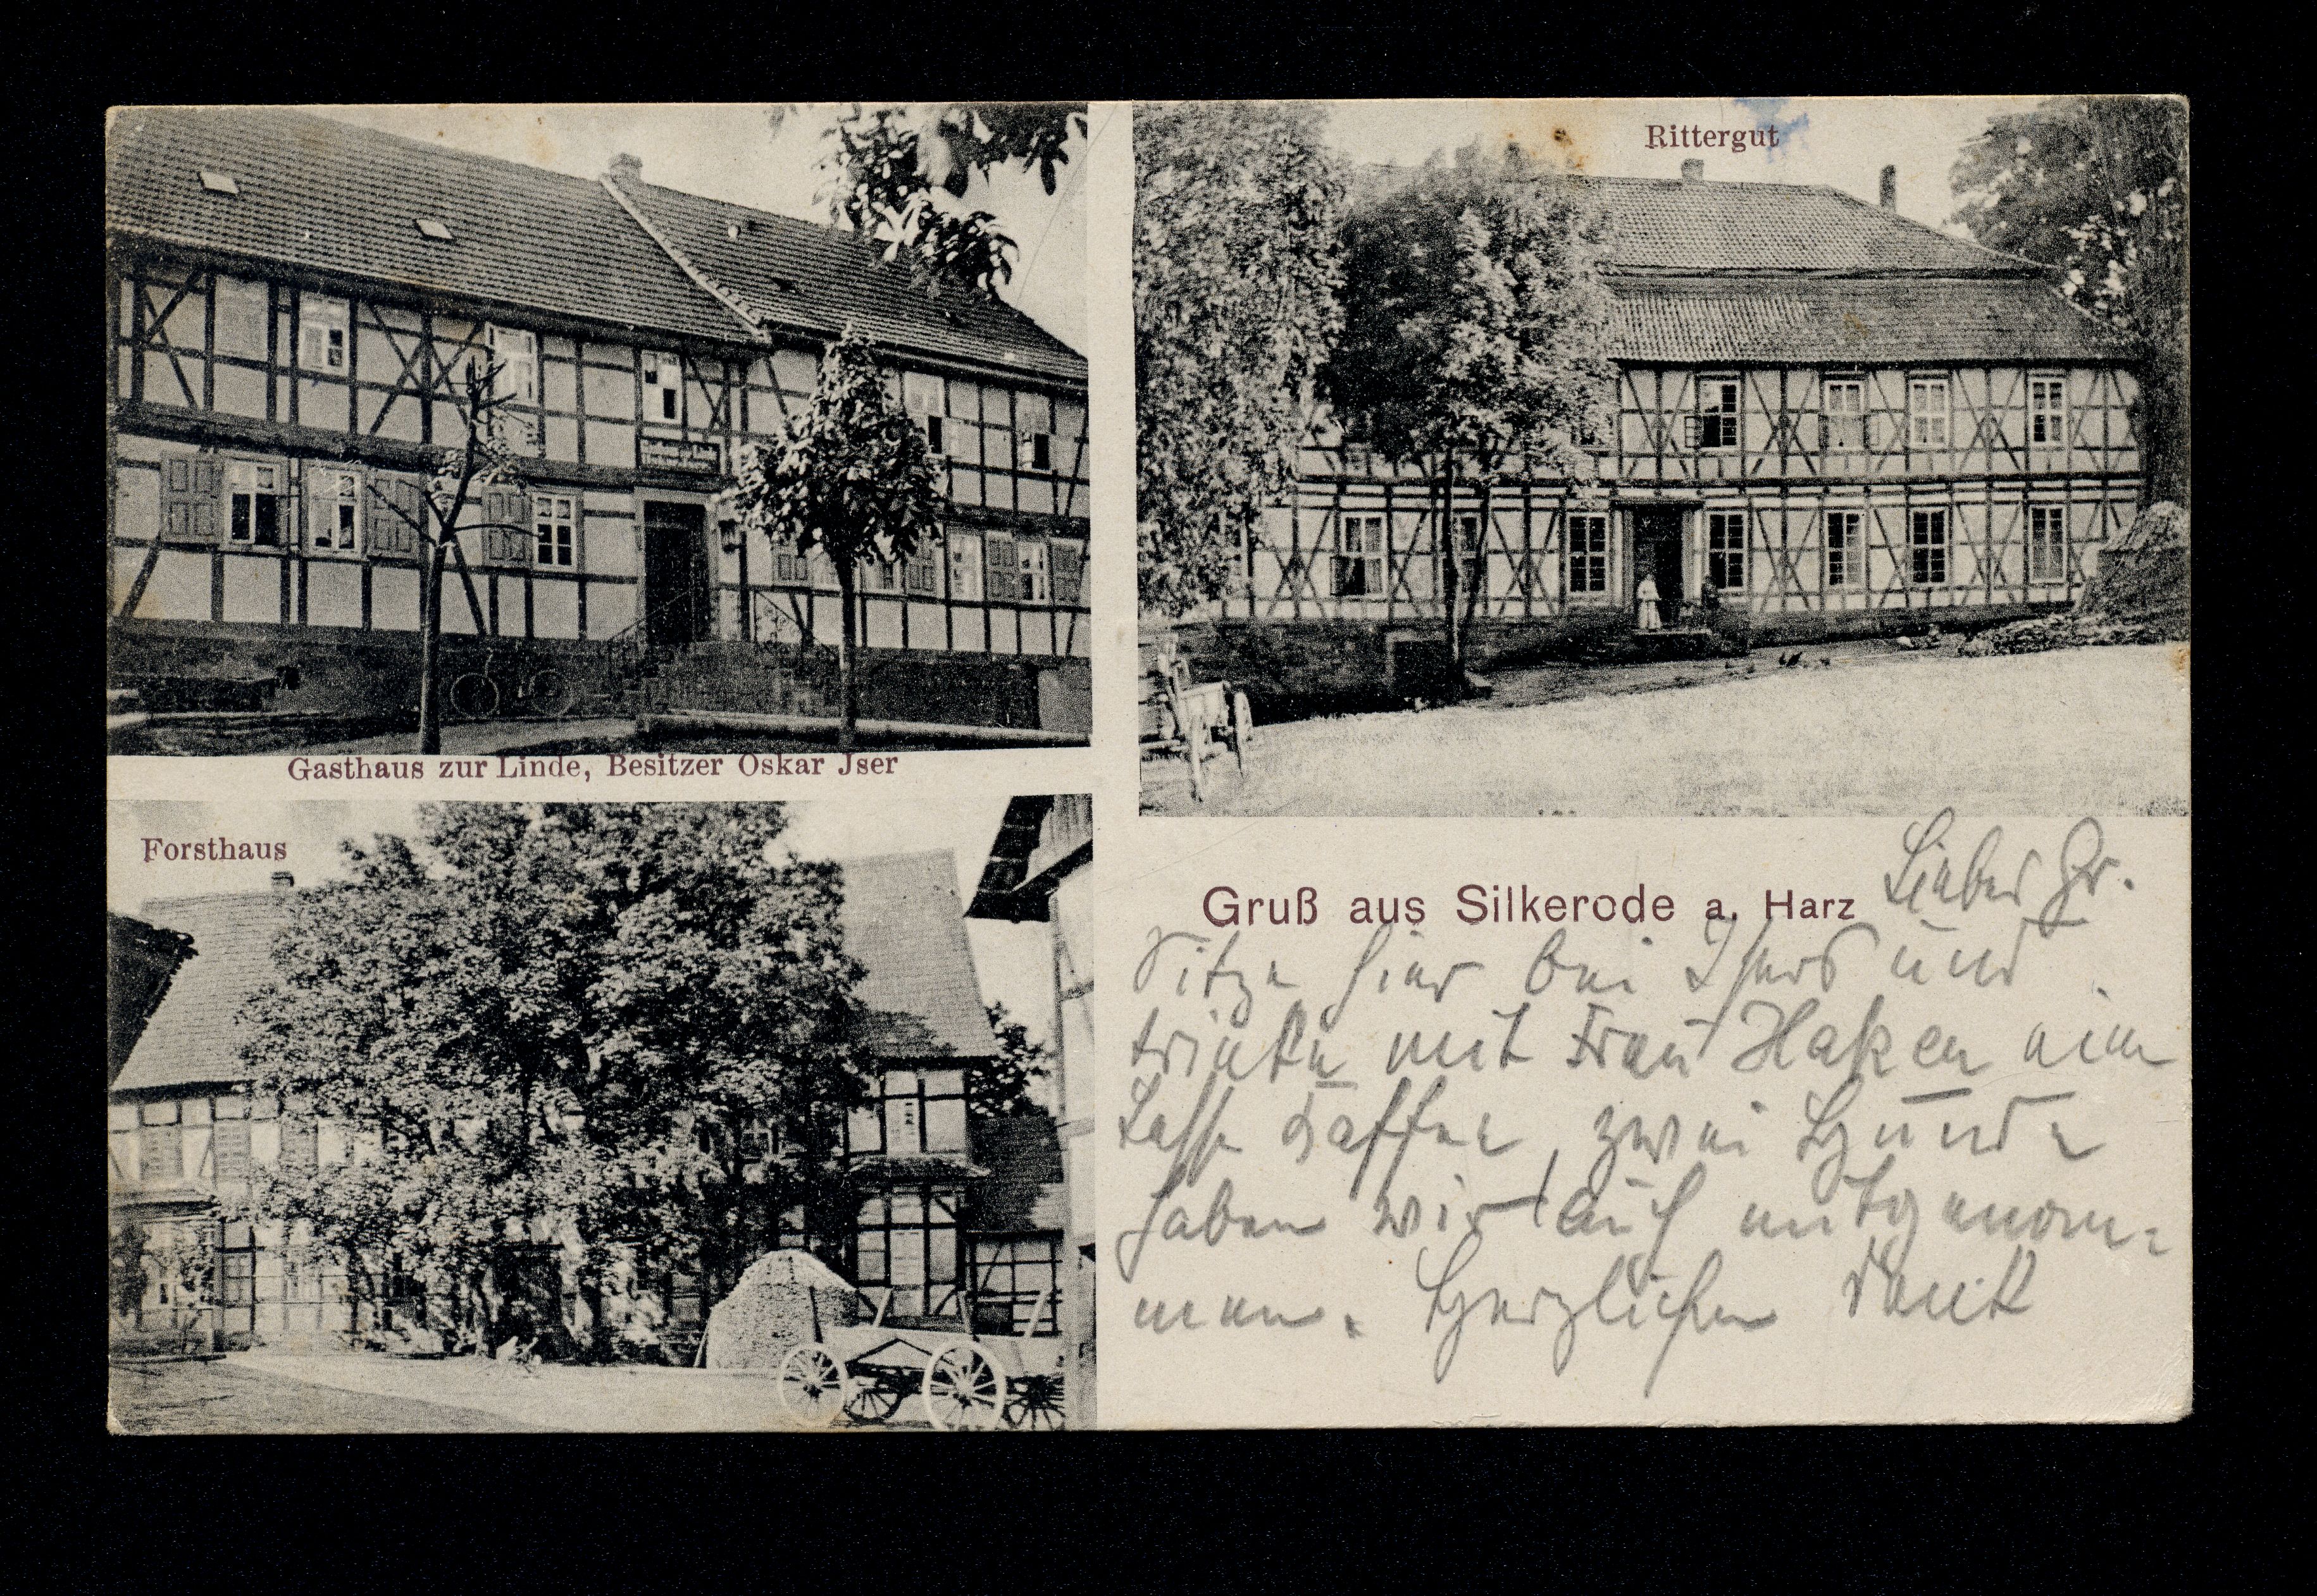 Rittergut
Gasthaus zur Linde, Besitzer Oskar Jser
Forsthaus
Gruß aus Silkerode a. Harz
Lieber Gr.
Sitze hier bei Isers und
trinke mit Frau Haken eine
Tasse Kaffee, zwei Hunde
haben wir auch mitgenom-
men. Herzlichen Dank